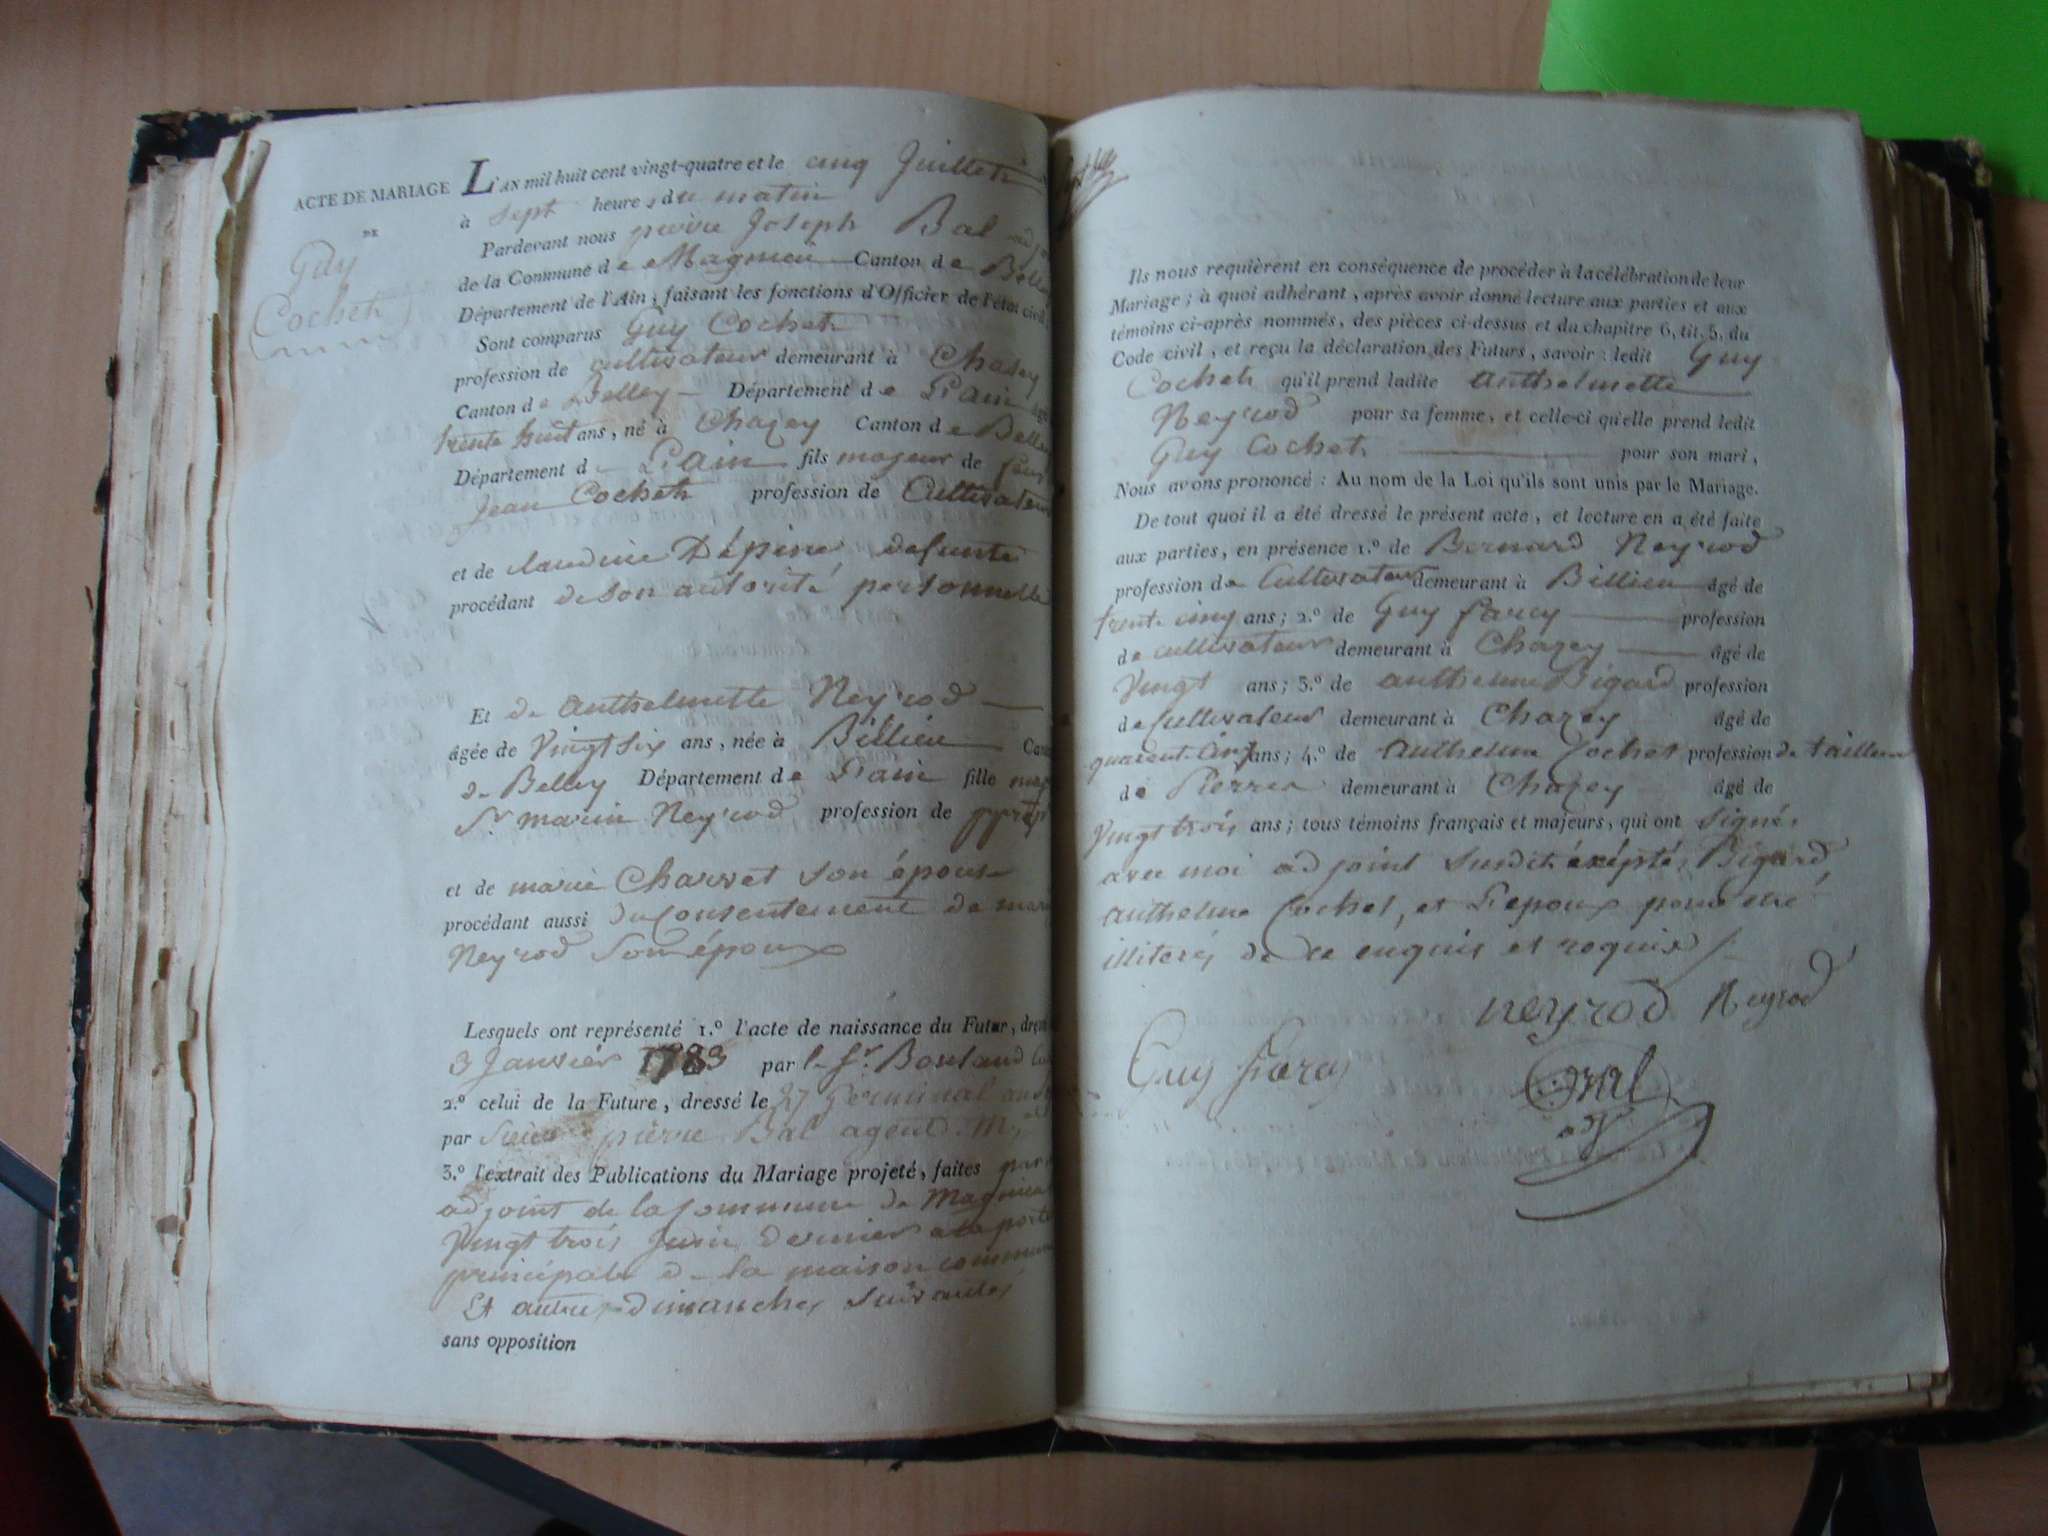 ACTE DE MARIAGE
DE
Guy
Cocheh
L'AN mil huit cent vingt-quatre et le cinq Juilleth
à sept heures du matin
Pardevant nous pierre Joseph Bal adj
de la Commune de Magnieu Canton de Belley
Département de l'Ain, faisant les fonctions d'Officier de l'état civil,
Sont comparus Guy Cocheh
profession de cultivateur demeurant à Chazey
Canton de Belley Département de L'ain âgé
trente huit ans, né à Chazey Canton de Belley
Département de L'ain fils majeur de feu
Jean Cocheh profession de Cultivateur
et de claudine Dépine, defunte
procédant de son autorité personnelle
Et de Anthelmette Neyrod
âgée de Vingt six ans, née à Billieu Can
de Belley Département de L'ain fille maj
Sr. marin Neyrod profession de ppro
et de marie Charvet son épouse
procédant aussi du Consentement de mari
Neyrod Son époux
Lesquels ont représenté 1.º l'acte de naissance du Futur, dre
3 Janvier 1783 par le Sr. Bouland
2.º celui de la Future, dressé le 27 Germinal an
par pierre Bal agent M
3.º l'extrait des Publications du Mariage projeté, faites par
adjoint de la Commune de Magnieu
Vingt trois Juin dernier a la porte
principale de la maison commun
Et autres dimanches Suivantes
sans opposition
Ils nous requièrent en conséquence de procéder à la célébration de leur
Mariage; à quoi adhérant, après avoir donné lecture aux parties et aux
témoins ci-après nommés, des pièces ci-dessus et du chapitre 6, tit. 5, du
Code civil, et reçu la déclaration des Futurs, savoir: ledit Guy
Cocheh qu'il prend ladite Anthelmette
Neyrod pour sa femme, et celle-ci qu'elle prend ledit
Guy Cocheh pour son mari,
Nous avons prononcé: Au nom de la Loi qu'ils sont unis par le Mariage.
De tout quoi il a été dressé le présent acte, et lecture en a été faite
aux parties, en présence 1.º de Bernard Neyrod
profession de Cultivateur demeurant à Billieu âgé de
trente cinq ans; 2.º de Guy farcy profession
de cultivateur demeurant à Chazey âgé de
Vingt ans; 3.º de anthelme Bigard profession
de Cultivateur demeurant à Chazey âgé de
quarent Cinq ans; 4.º de Anthelme Cochet profession de tailleur
de Pierres demeurant à Chazey âgé de
Vingt trois ans; tous témoins français et majeurs, qui ont signés
avec moi adjoint Susdit éxéptés Bigard
Anthelme Cochet, et L'epoux pour être
illiterés de ce enquis et requis
neyrod Neyrod
Guy farcy
Bal
adj